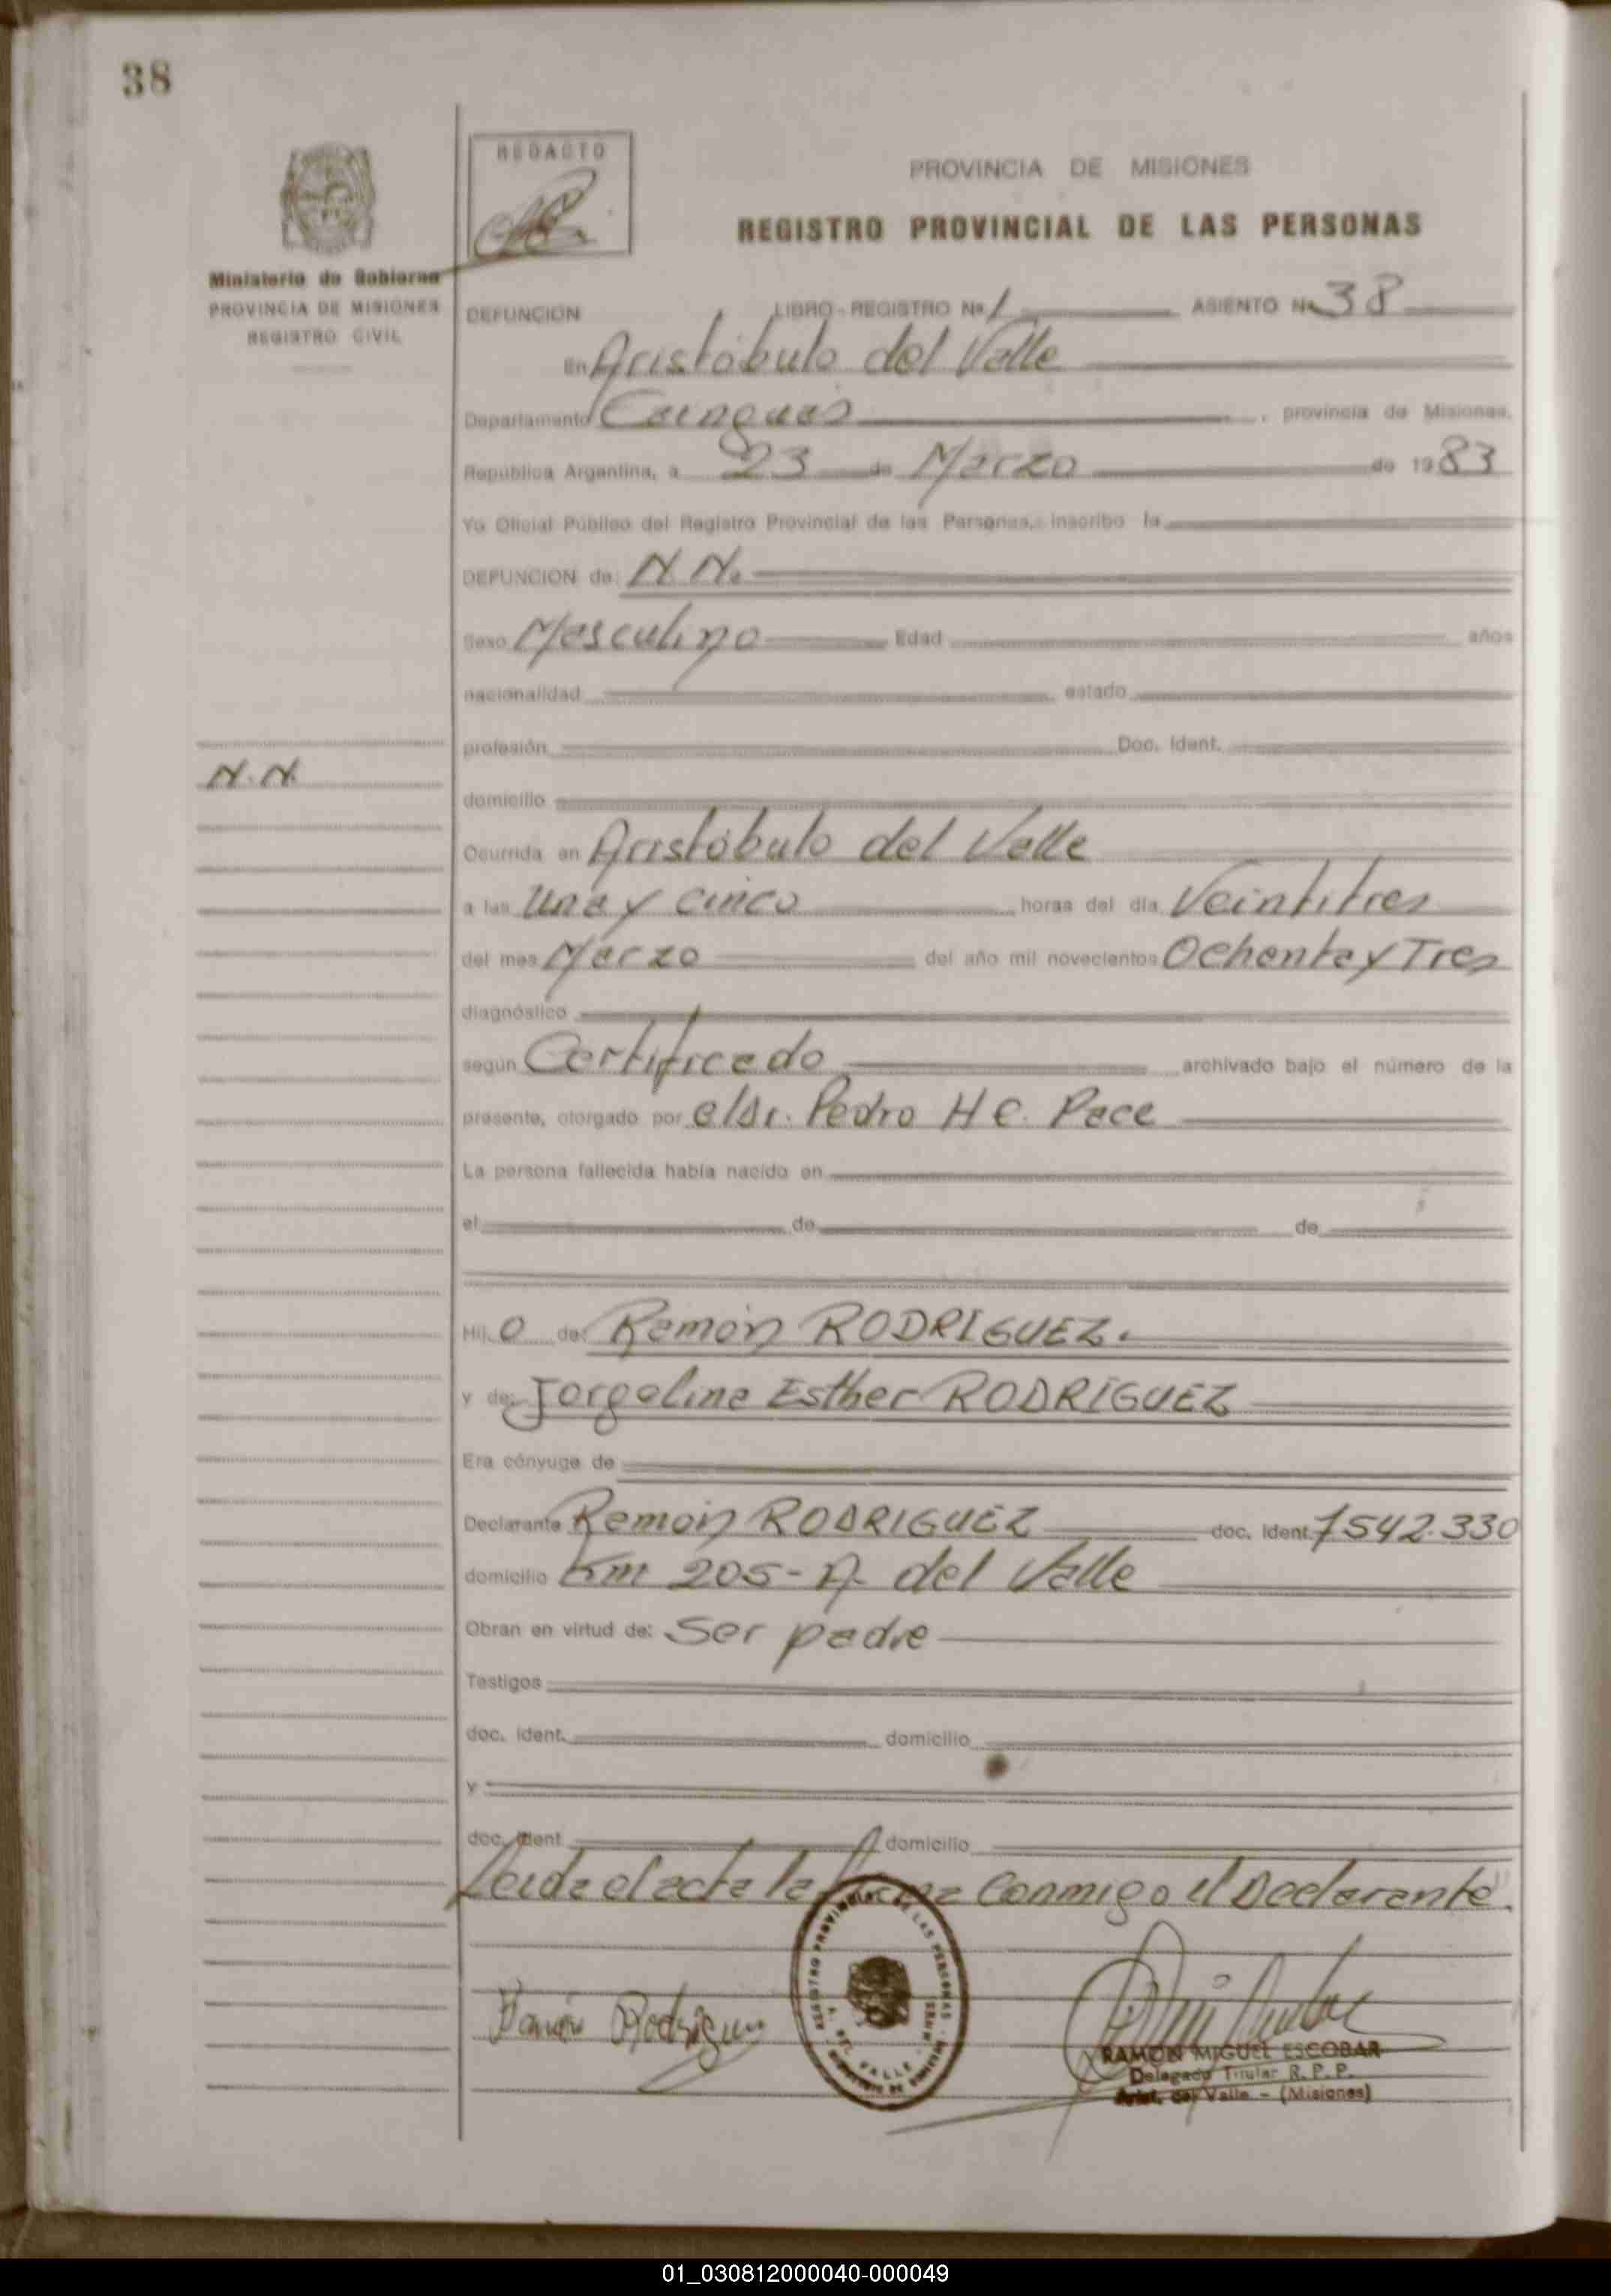 38
REDACTO
PROVINCIA DE MISIONES
REGISTRO PROVINCIAL DE LAS PERSONAS
Ministerio de Gobierno
PROVINCIA DE MISIONES
REGISTRO CIVIL
DEFUNCION LIBRO - REGISTRO Nº 1 ASIENTO Nº 38
En Aristóbulo del Valle
Departamento Cainguas, provincia de Misiones,
República Argentina, a 23 de Marzo de 1983
Yo Oficial Público del Registro Provincial de las Personas, inscribo la
DEFUNCION de: N. N.
Sexo Masculino Edad años
nacionalidad estado
profesión Doc. Ident.
N. N.
domicilio
Ocurrida en Aristóbulo del Valle
a las Una y cinco horas del día Veintitres
del mes Marzo del año mil novecientos Ochenta y Tres
diagnóstico
según Certificado archivado bajo el número de la
presente, otorgado por el Dr. Pedro H C. Pace
La persona fallecida había nacido en
el de de
Hij o de: Ramón RODRIGUEZ.
y de: Jorgelina Esther RODRÍGUEZ
Era cónyuge de
Declarante Ramón RODRIGUEZ doc. ident. 7542.330
domicilio Km 205 - A. del Valle
Obran en virtud de: Ser padre
Testigos
doc. ident. domicilio
y
doc. ident. domicilio
Leida el acta la firma Conmigo el Declarante.
Ramón Rodriguez
REGISTRO PROVINCIAL DE LAS PERSONAS
A. DEL VALLE
RAMON MIGUEL ESCOBAR
Delegado Titular R. P. P.
Arist. del Valle - (Misiones)
01_030812000040-000049